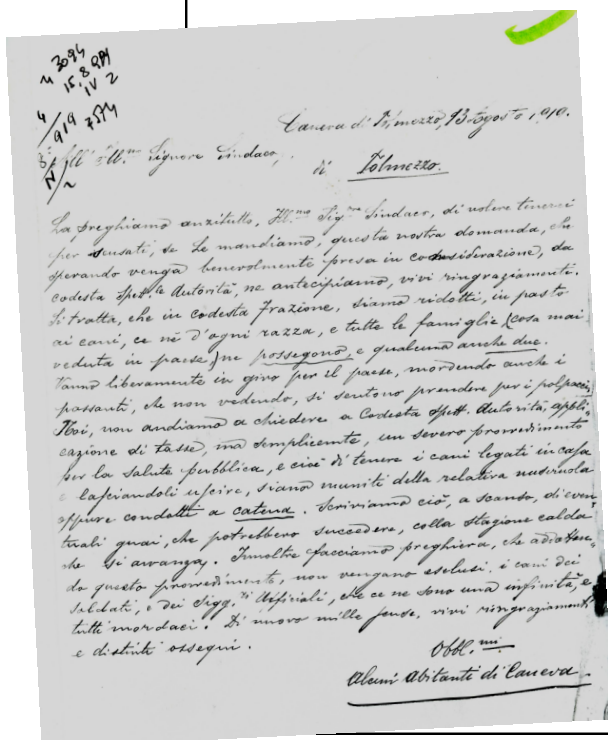 N 3094
15.8.919
IV 2
4/919 7574
Caneva di Tolmezzo, 13 Agosto 1919.
All' Ill.mo Signore Sindaco,
di Tolmezzo.
La preghiamo anzitutto, Ill.mo Sig.re Sindaco, di volere tenerci
per scusati, se Le mandiamo, questa nostra domanda, che
sperando venga benevolmente presa in considerazione, da
codesta Spett.le Autorità, ne antecipiamo, vivi ringraziamenti.
Si tratta, che in codesta Frazione, siamo ridotti, in pasto
ai cani, ce nè d'ogni razza, e tutte le famiglie (cosa mai
veduta in paese,) ne possegono e qualcuna anche due.
Vanno liberamente in giro per il paese, mordendo anche i
passanti, che non vedendo, si sentono prendere per i polpacci.
Noi, non andiamo a chiedere a Codesta Spett. Autorità, appli-
cazione di tasse, ma semplicente, un severo provvedimento
per la salute pubblica, e cioè di tenere i cani legati in casa
e lasciandoli uscire, siano muniti della relativa museruola
oppure condotti a catena. Scriviamo ciò, a scanso, di even-
tuali guai, che potrebbero succedere, colla stagione calda
che si avanza. Innoltre facciamo preghiera, che adotten-
do questo provvedimento, non vengano esclusi, i cani dei
soldati, e dei Sigg.ri Ufficiali, che ce ne sono una infinità, e
tutti mordaci. Di nuovo mille scuse, vivi ringraziamenti,
e distinti ossequi.
Obbl.mi
Alcuni Abitanti di Caneva